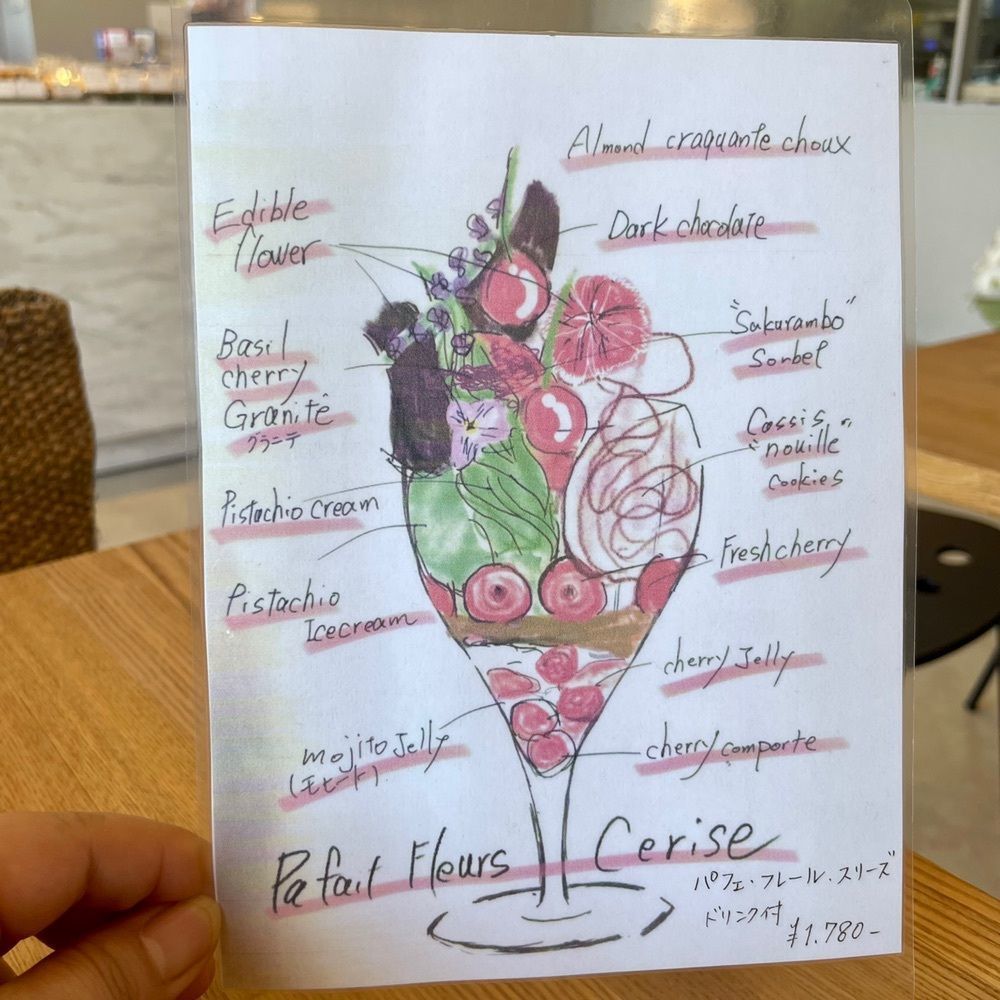 Almond craquante choux
Edible
flower
Dark chocolate
Basil
cherry
Granitē
グラニテ
"Sakurambo"
Sorbet
Cassis
"nouille"
cookies
Pistachio cream
Fresh cherry
Pistachio
Icecream
cherry Jelly
mojito Jelly
(モヒート)
cherry comporte
Pafait Fleurs Cerise
パフェ・フレール・スリーズ
ドリンク付
¥1.780-